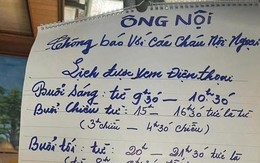 ÔNG NỘI
Thông báo Với Các Cháu Nội Ngoại
Lịch được xem Điện thoại
Buổi Sáng: từ 9h30 — 10h30
Buổi Chiều từ: 15h — 16h30 tức là từ
(3h chiều — 4h30 chiều)
Buổi tối: từ 20h — 21h30 tức là từ